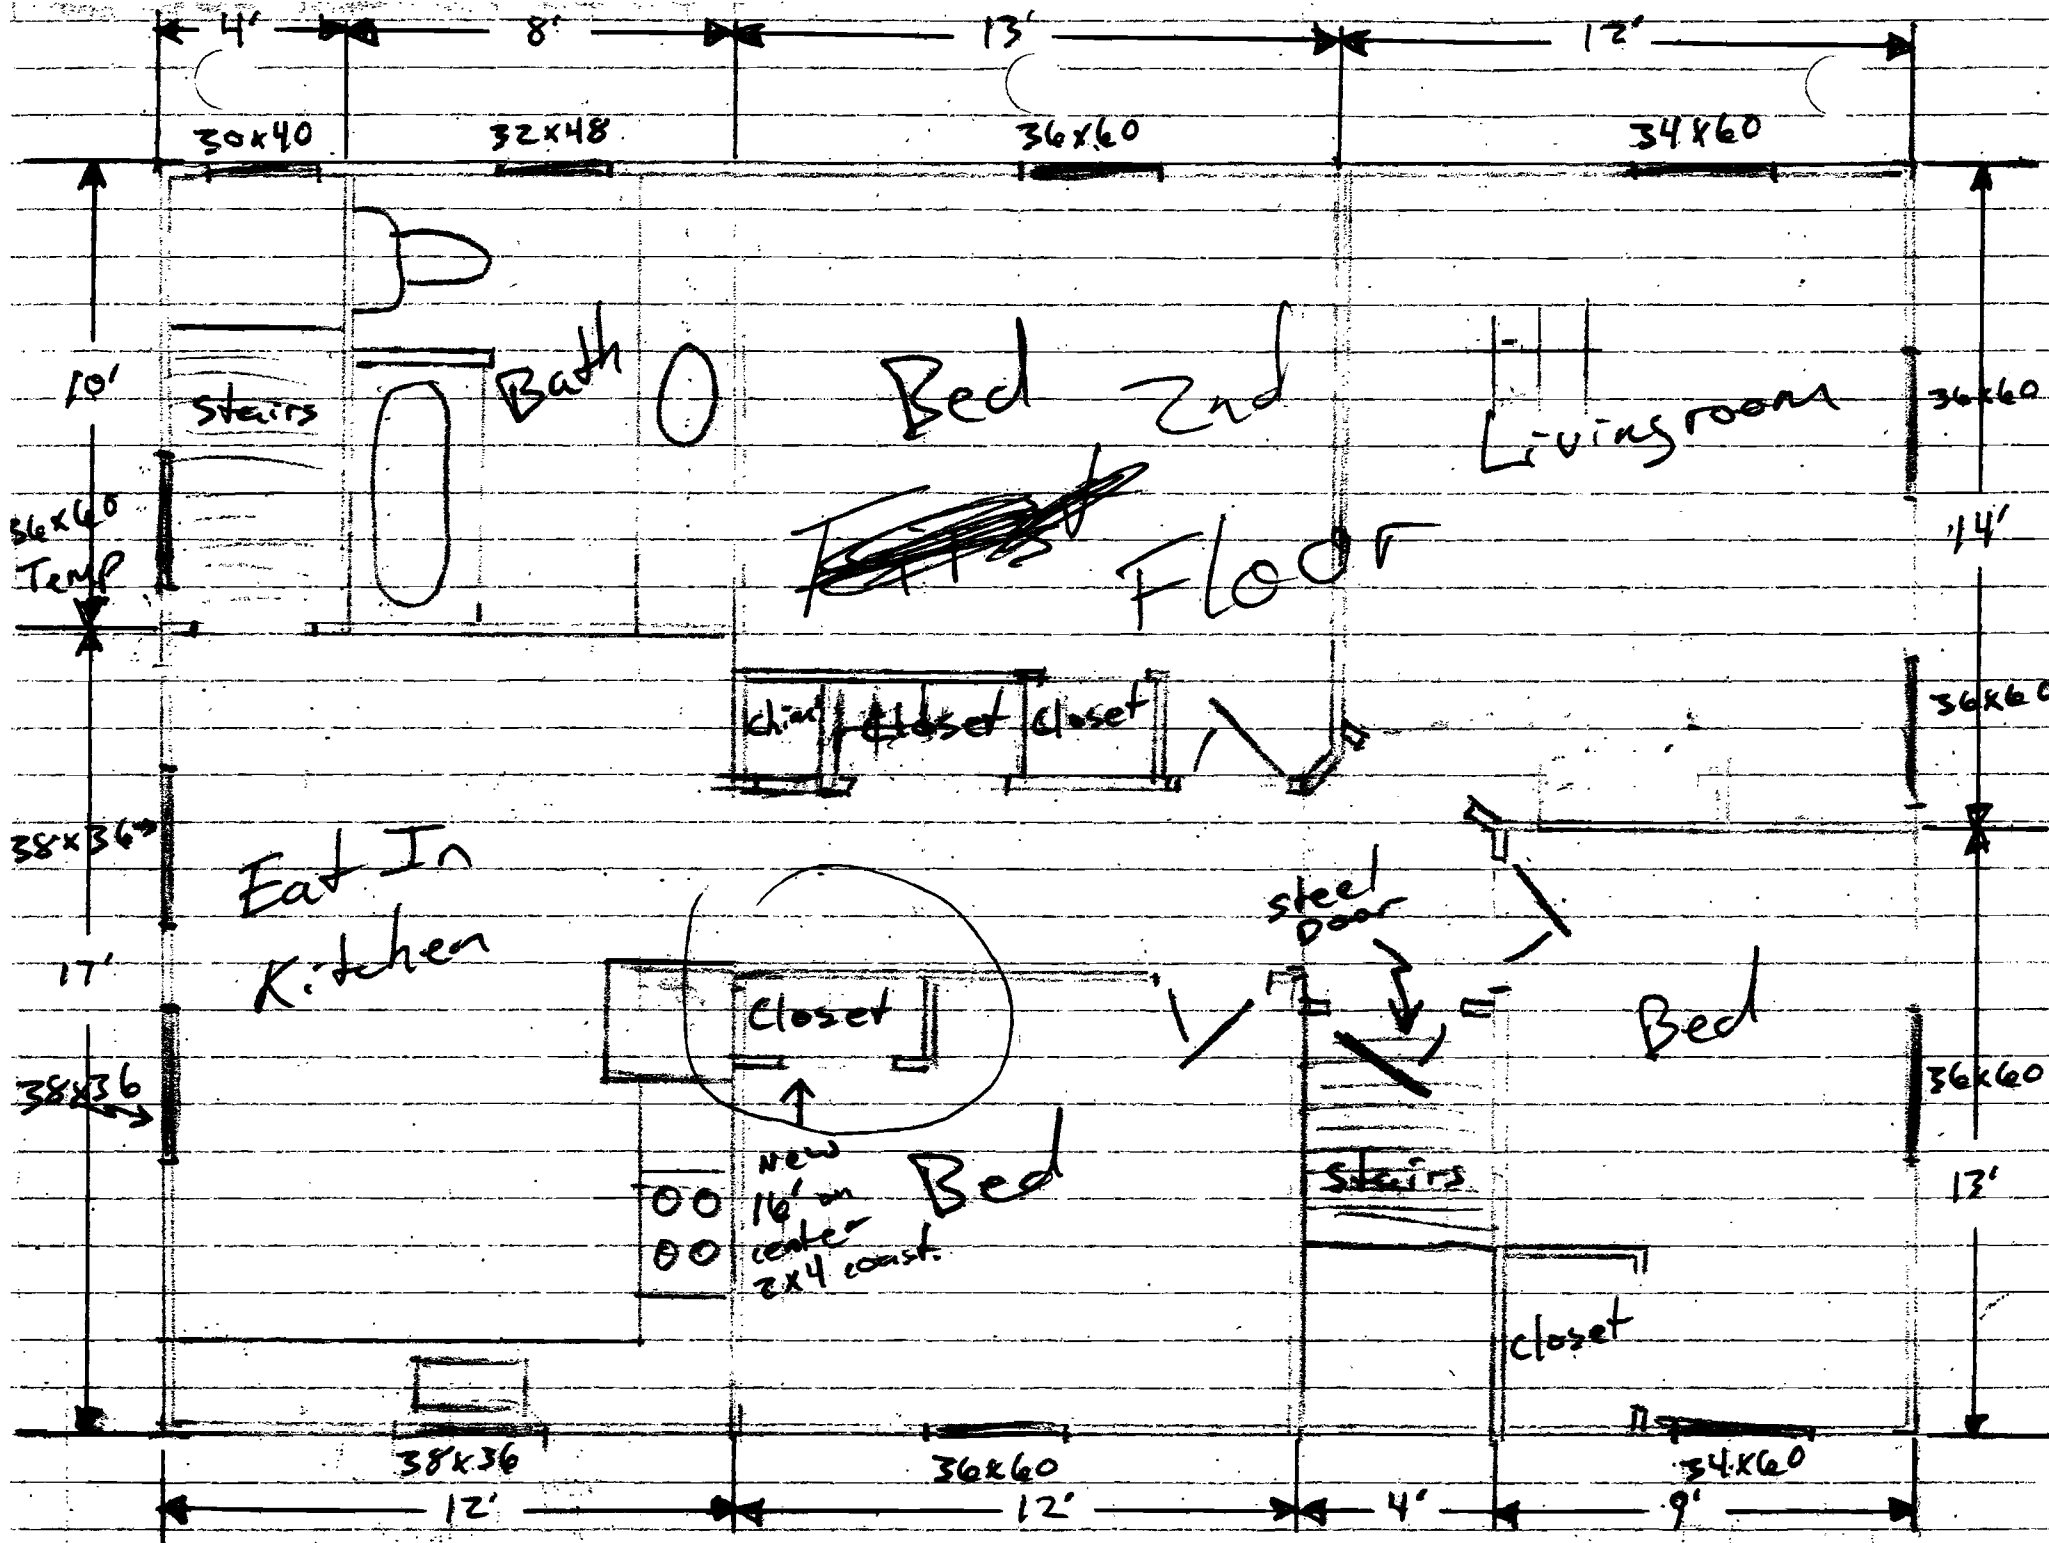 4' 8' 13' 12'
30x40 32x48 36x60 34x60
10'
Stairs
Bath
Bed 2nd
Livingroom
36x60
36x60
Temp
Floor
14'
Closet Closet
36x60
38x36
Eat In
Kitchen
steel
Door
17'
Closet
Bed
38x36
36x60
New
16' on
center
2x4 coast.
Bed
Stairs
13'
Closet
38x36 36x60 34x60
12' 12' 4' 9'